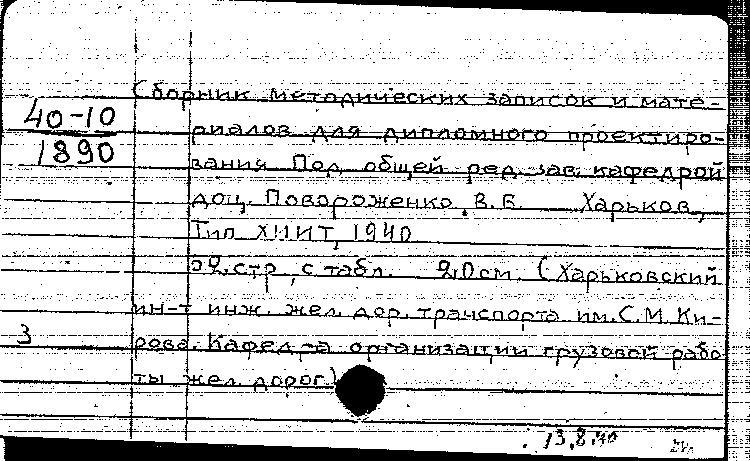 Сборник методических записок и мате-
40-10
риалов для дипломного проектиро-
1890
вания. Под общей ред. зав. кафедрой
доц. Повороженко, В. В. Харьков,
Тип ХИИТ, 1940
стр., с табл. 20 см. (Харьковский
ин-т инж. жел. дор. транспорта им. С. М. Ки-
3
рова. Кафед-а организации грузовой рабо
ты жел. дорог)
13.8.40